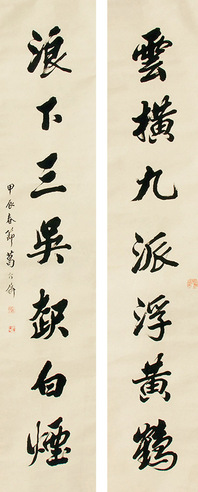 雲橫九派浮黃鶴
浪下三吳起白煙
甲辰春節